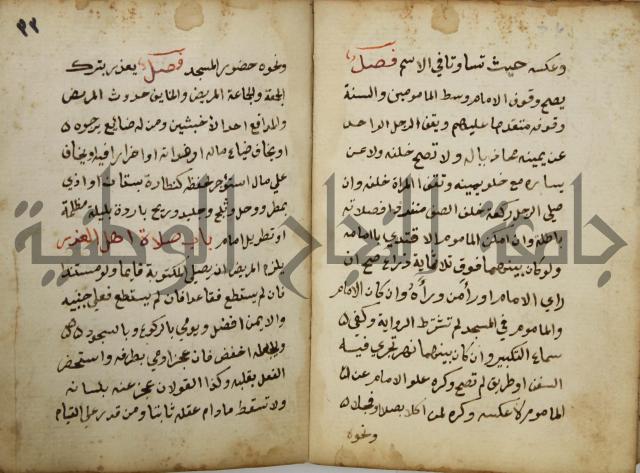 وعكسه حيث تساوتا في الاسم فصل
يصح وقوف الامام وسط المامومين والسنة
وقوفه متقدما عليهم ويقف الرجل الواحد
عن يمينه محاذيا له ولا تصح خلفه ولا عن
يساره مع خلو يمينه وتقف المراة خلفه وان
صلى الرجل ركعة خلف الصف منفردا فصلاته
باطلة وان امكن الماموم الاقتدي بامامه
ولو كان بينهما فوق ثلاثماية ذراع صح ان
راي الامام او راي من وراه وان كان الامام
والماموم في المسجد لم تشترط الروية وكفى
سماع التكبير وان كان بينهما نهر تجري فيه
السفن او طريق لم تصح وكره علو الامام عن
الماموم لا عكسه وكره لمن اكل بصلا او فجلا
ونحوه
٣٢
ونحوه حضور المسجد فصل يعذر بترك
الجمعة والجماعة المريض والخايف حدوث المرض
والمدافع احد الاخبثين ومن له ضايع يرجوه
او يخاف ضياع ماله او فواته او احتراق او يخاف
على مال استوجر لحفظه كنطارة بستان او اذي
بمطر ووحل وثلج وجليد وريح باردة بليلة مظلمة
او تطويل امام باب صلاة اهل العذر
يلزم المريض ان يصلي المكتوبة قايما ولو مستندا
فان لم يستطع فقاعدا فان لم يستطع فعلى جنبه
والايمن افضل ويومي بالركوع وبالسجود
ويجعله اخفض فان عجز اومى بطرفه واستحضر
الفعل بقلبه وكذا القول ان عجز عنه بلسانه
ولا تسقط ما دام عقله ثابتا ومن قدر على القيام
جامعة النجاح الوطنية